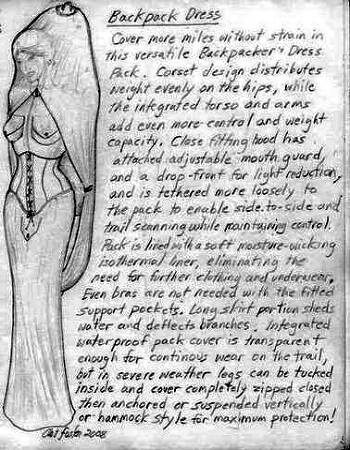 Backpack Dress
Cover more miles without strain in
this versatile Backpacker's Dress
Pack. Corset design distributes
weight evenly on the hips, while
the integrated torso and arms
add even more control and weight
capacity. Close fitting hood has
attached adjustable mouth guard,
and a drop-front for light reduction,
and is tethered more loosely to
the pack to enable side-to-side and
trail scanning while maintaining control.
Pack is lined with a soft moisture-wicking
isothermal liner, eliminating the
need for further clothing and underwear.
Even bras are not needed with the fitted
support pockets. Long skirt portion sheds
water and deflects branches. Integrated
waterproof pack cover is transparent
enough for continous wear on the trail,
but in severe weather legs can be tucked
inside and cover completely zipped closed
then anchored or suspended vertically
or hammock style for maximum protection!
2008